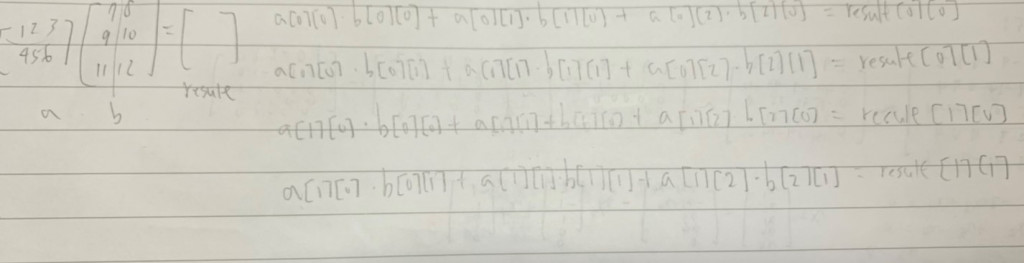 [1 2 3 / 4 5 6] [7 8 / 9 10 / 11 12] = [ ]
a b result
a[0][0] · b[0][0] + a[0][1] · b[1][0] + a[0][2] · b[2][0] = result[0][0]
a[0][0] · b[0][1] + a[0][1] · b[1][1] + a[0][2] · b[2][1] = result[0][1]
a[1][0] · b[0][0] + a[1][1] + b[1][0] + a[1][2] b[2][0] = result [1][0]
a[1][0] · b[0][1] + a[1][1] · b[1][1] + a[1][2] · b[2][1] = result [1][1]